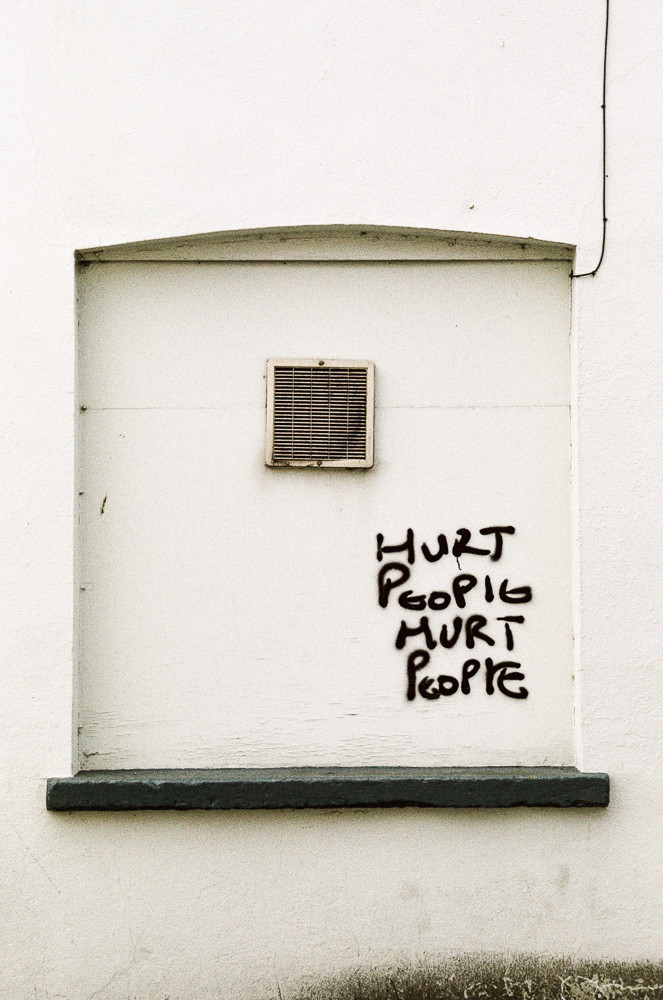 HURT
PEOPlE
HURT
PEOPlE